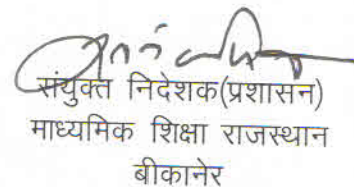 संयुक्त निदेशक(प्रशासन)
माध्यमिक शिक्षा राजस्थान
बीकानेर